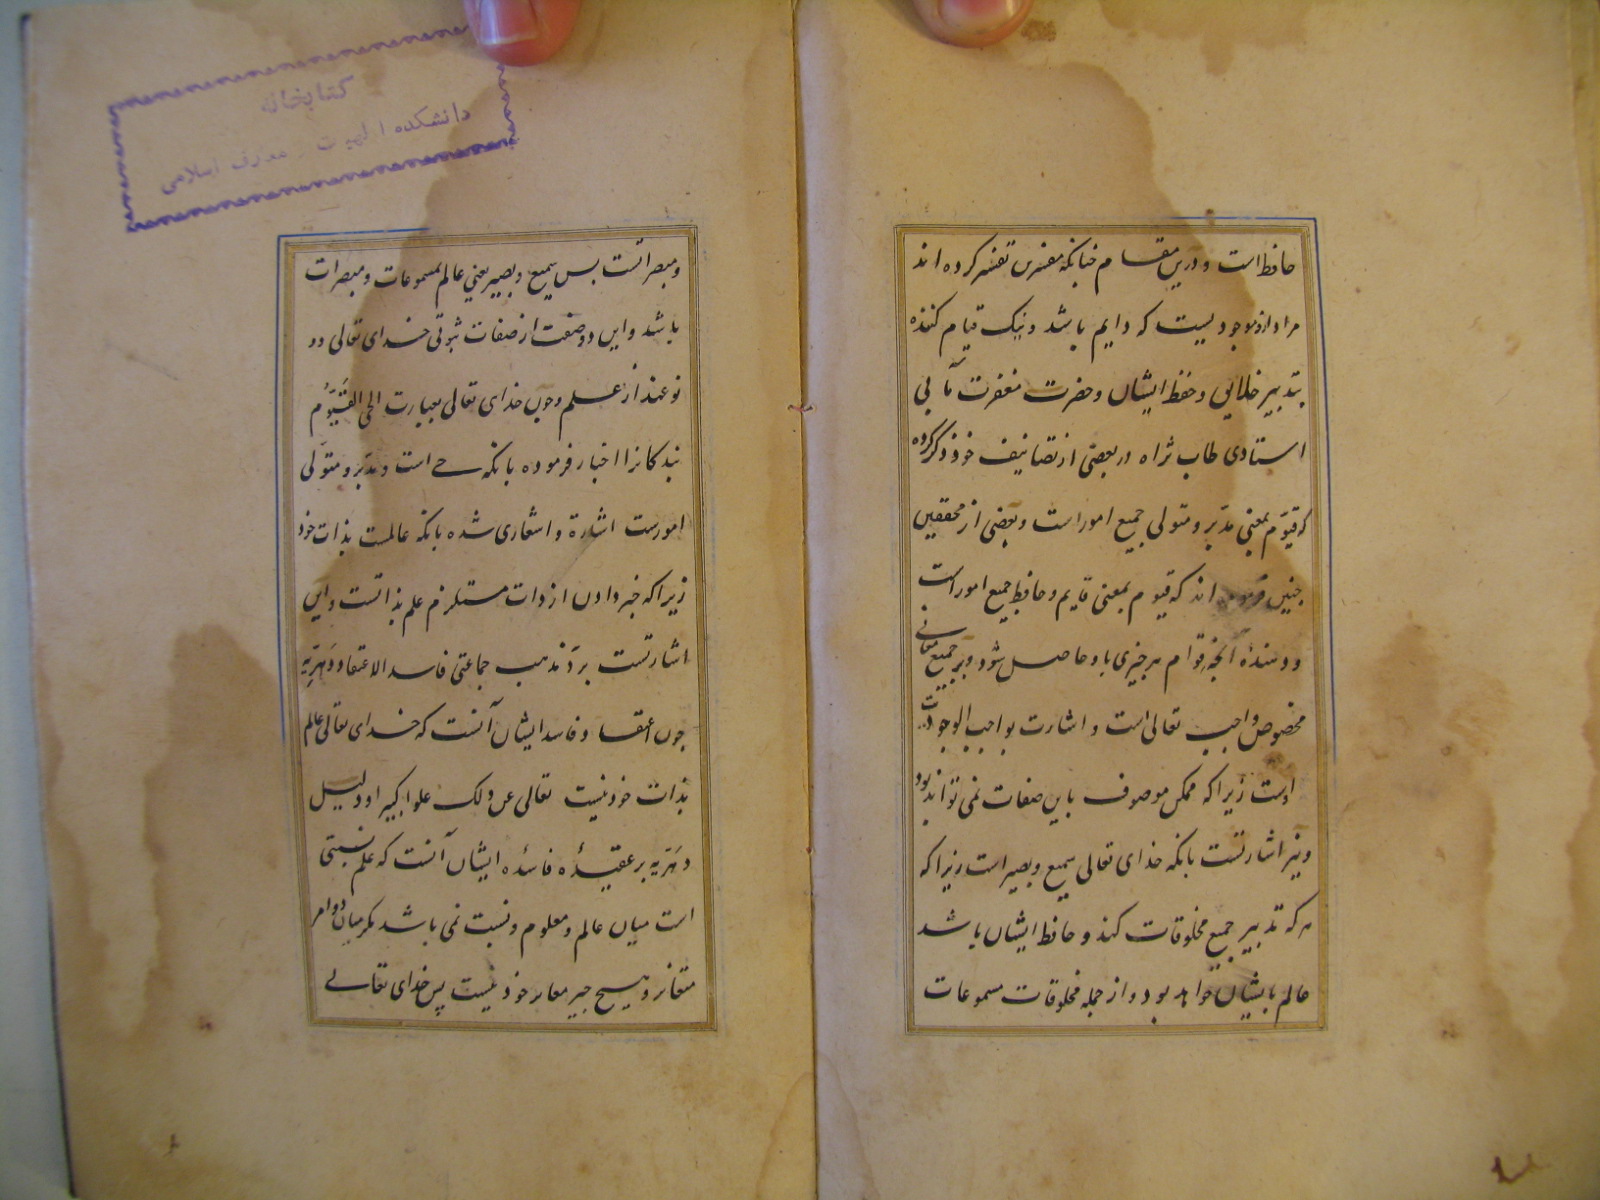 حافظ است و درین مقام چنانکه مفسرین تفسیر کرده اند
مراد از موجودیست که دایم باشد و نیک قیام کننده
بتدبیر خلایق و حفظ ایشان و حضرت مغفرت مآبی
استادی طاب ثراه در بعضی از تصانیف خود ذکر کرده
که قیوم بمعنی مدبر و متولی جمیع امور است و بعضی از محققین
چنین فرموده اند که قیوم بمعنی قایم و حافظ جمیع امور است
و دهنده آنچه قوام هر چیزی باو حاصل شود و بر جمیع معانی
مخصوص واجب تعالی است و اشارت بواجب الوجود
اوست زیرا که ممکن موصوف باین صفات نمی تواند بود
و نیز اشارتست بانکه خدای تعالی سمیع و بصیر است زیرا که
هر که تدبیر جمیع مخلوقات کند و حافظ ایشان باشد
عالم بایشان خواهد بود و از جمله مخلوقات مسموعات
کتابخانه
دانشکده الهیات و معارف اسلامی
و مبصراتست پس سمیع و بصیر یعنی عالم بمسموعات و مبصرات
باشد و این دو صفت از صفات ثبوتی خدای تعالی دو
نوعند از علم و چون خدای تعالی بعبارت الحی القیوم
بندکانرا اخبار فرموده بانکه حی است و مدبر و متولی
امورست اشارة و اشعاری شده بانکه عالمست بذات خود
زیرا که خبر دادن از ذات مستلزم علم بذاتست و این
اشارتست برد مذهب جماعتی فاسد الاعتقاد دهریه
چون اعتقاد فاسد ایشان آنست که خدای تعالی عالم
بذات خود نیست تعالی عن ذلک علوا کبیرا و دلیل
دهریه بر عقیدهٔ فاسدهٔ ایشان آنست که علم نسبتی
است میان عالم و معلوم و نسبت نمی باشد مکر میان دو امر
متغایر و هیچ چیز مغایر خود نیست پس خدای تعالی